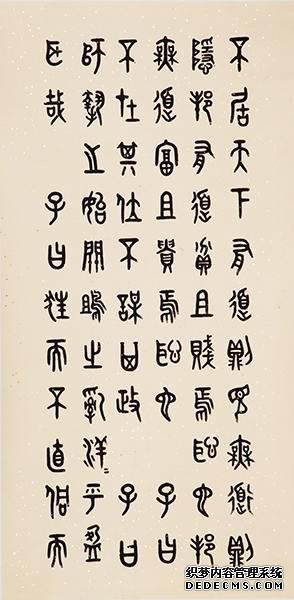 不居天下有道則見無道則
隱邦有道貧且賤焉恥也邦
無道富且貴焉恥也 子曰
不在其位不謀其政 子曰
師摯之始關雎之亂洋〻乎盈
耳哉 子曰狂而不直侗而
织梦内容管理系统
DEDECMS.COM